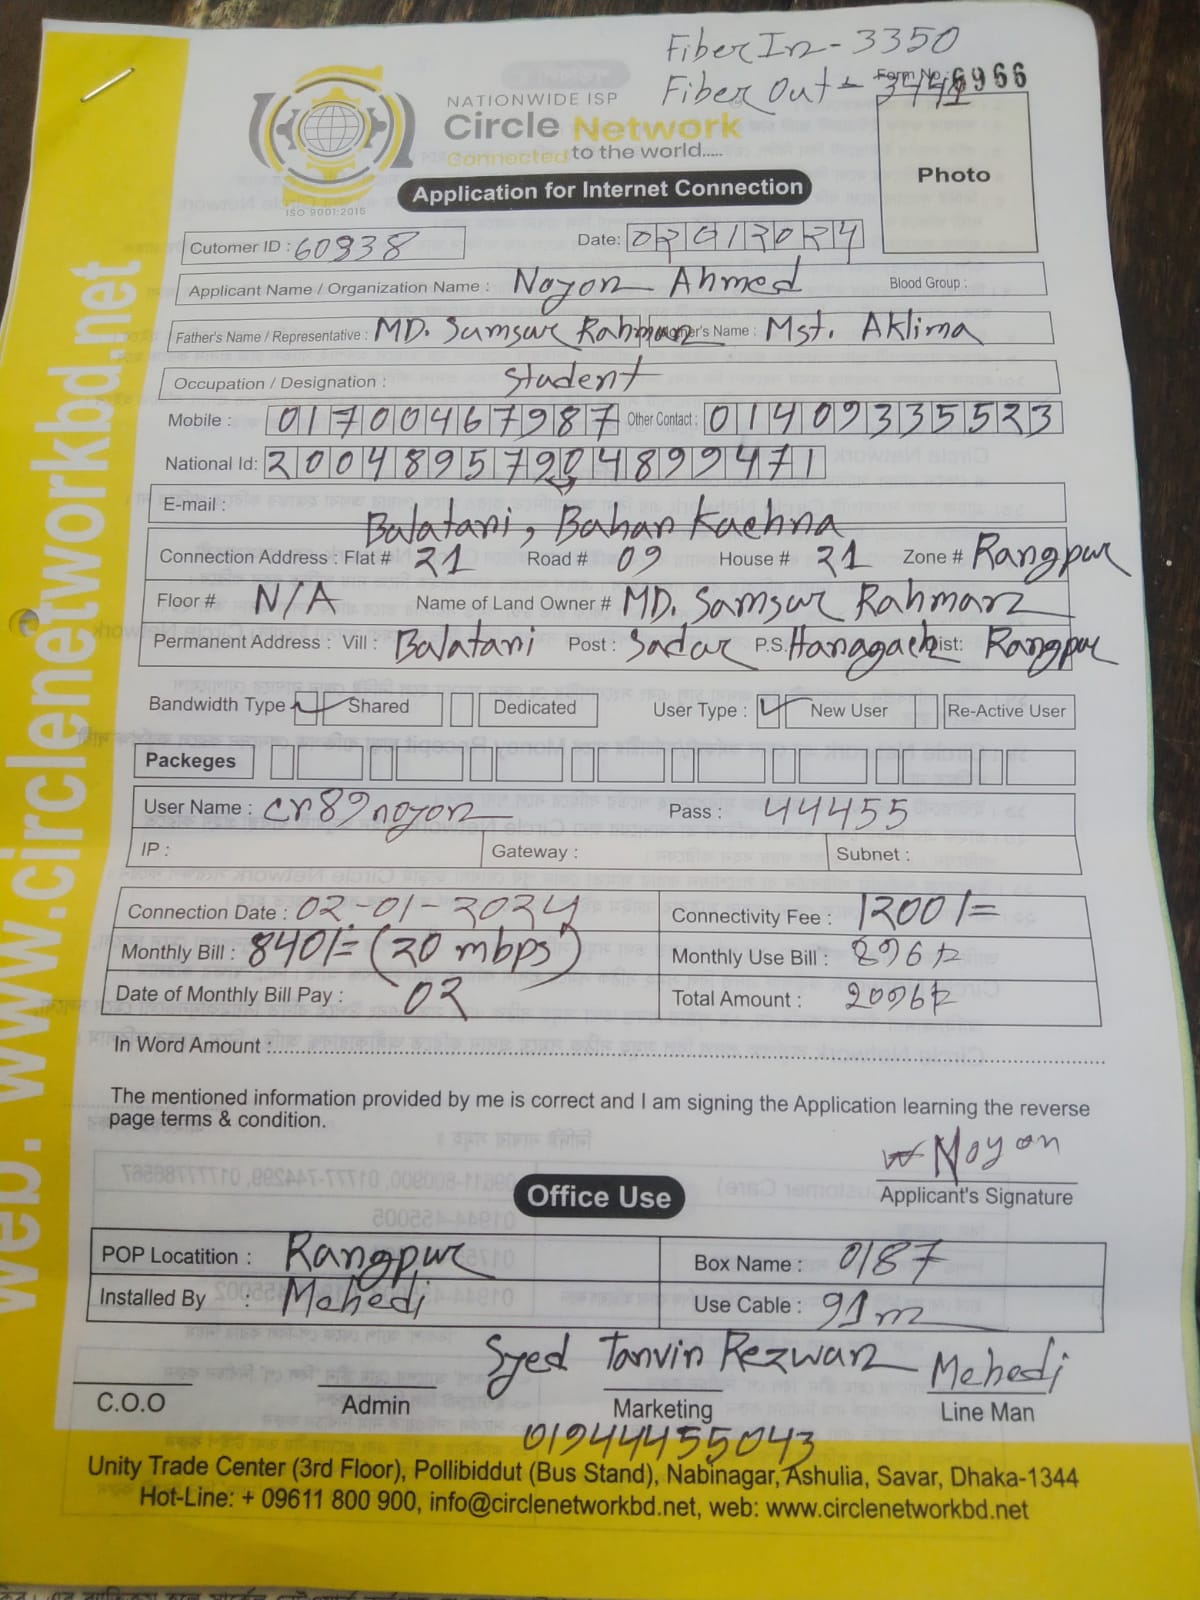 Fiber In - 3350
Fiber Out - 3441
Form No : 6966
NATIONWIDE ISP
Circle Network
Connected to the world.....
ISO 9001:2015
Application for Internet Connection
Photo
Cutomer ID : 60938
Date: 02012024
Applicant Name / Organization Name : Noyon Ahmed Blood Group :
Father's Name / Representative : MD. Samsur Rahman Mother's Name : Mst. Aklima
Occupation / Designation : Student
Mobile : 01700467987 Other Contact : 01409335523
National Id: 20048957904899471
E-mail :
Balatari, Bahar Kachna
Connection Address : Flat # 21 Road # 09 House # 21 Zone # Rangpur
Floor # N/A Name of Land Owner # MD. Samsur Rahman
Permanent Address : Vill : Balatari Post : Sadar P.S. Haragach Dist: Rangpur
Bandwidth Type Shared Dedicated User Type : New User Re-Active User
Packeges
User Name : cr89noyon Pass : 44455
IP : Gateway : Subnet :
Connection Date : 02-01-2024 Connectivity Fee : 1200/=
Monthly Bill : 840/= (20 mbps) Monthly Use Bill : 896
Date of Monthly Bill Pay : 02 Total Amount : 2096
In Word Amount :
The mentioned information provided by me is correct and I am signing the Application learning the reverse
page terms & condition.
Noyon
Applicant's Signature
Office Use
POP Locatition : Rangpur Box Name : 0187
Installed By : Mehedi Use Cable : 91m
Syed Tanvin Rezwan Mehedi
C.O.O Admin Marketing Line Man
01944455043
Unity Trade Center (3rd Floor), Pollibiddut (Bus Stand), Nabinagar, Ashulia, Savar, Dhaka-1344
Hot-Line: + 09611 800 900, info@circlenetworkbd.net, web: www.circlenetworkbd.net
web: www.circlenetworkbd.net